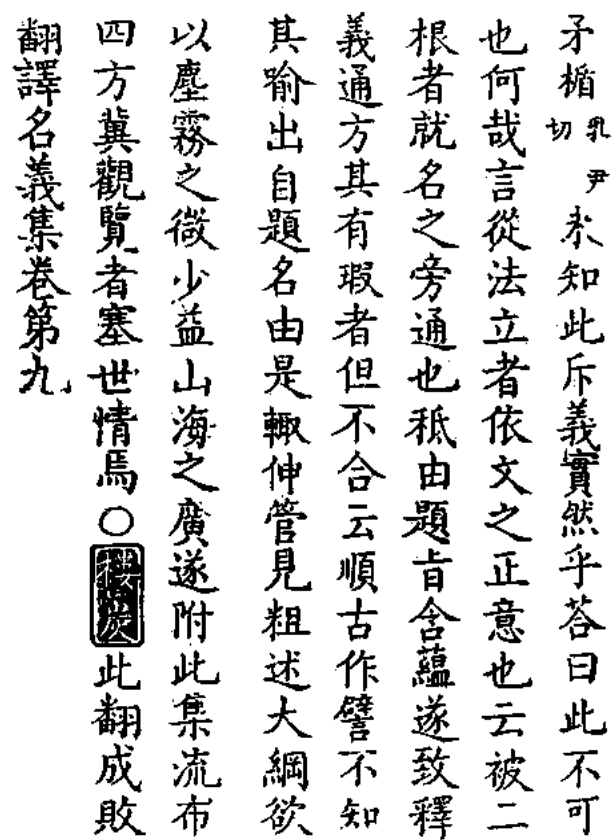 矛楯乳尹切未知此斥義實然乎荅曰此不可
也何哉言從法立者依文之正意也云被二
根者就名之旁通也秖由題旨含蘊遂致釋
義通方其有瑕者但不合云順古作譬不知
其喻出自題名由是輙伸管見粗述大綱欲
以塵霧之微少益山海之廣遂附此集流布
四方兾觀覽者塞世情焉〇揵度此翻成敗
翻譯名義集卷第九